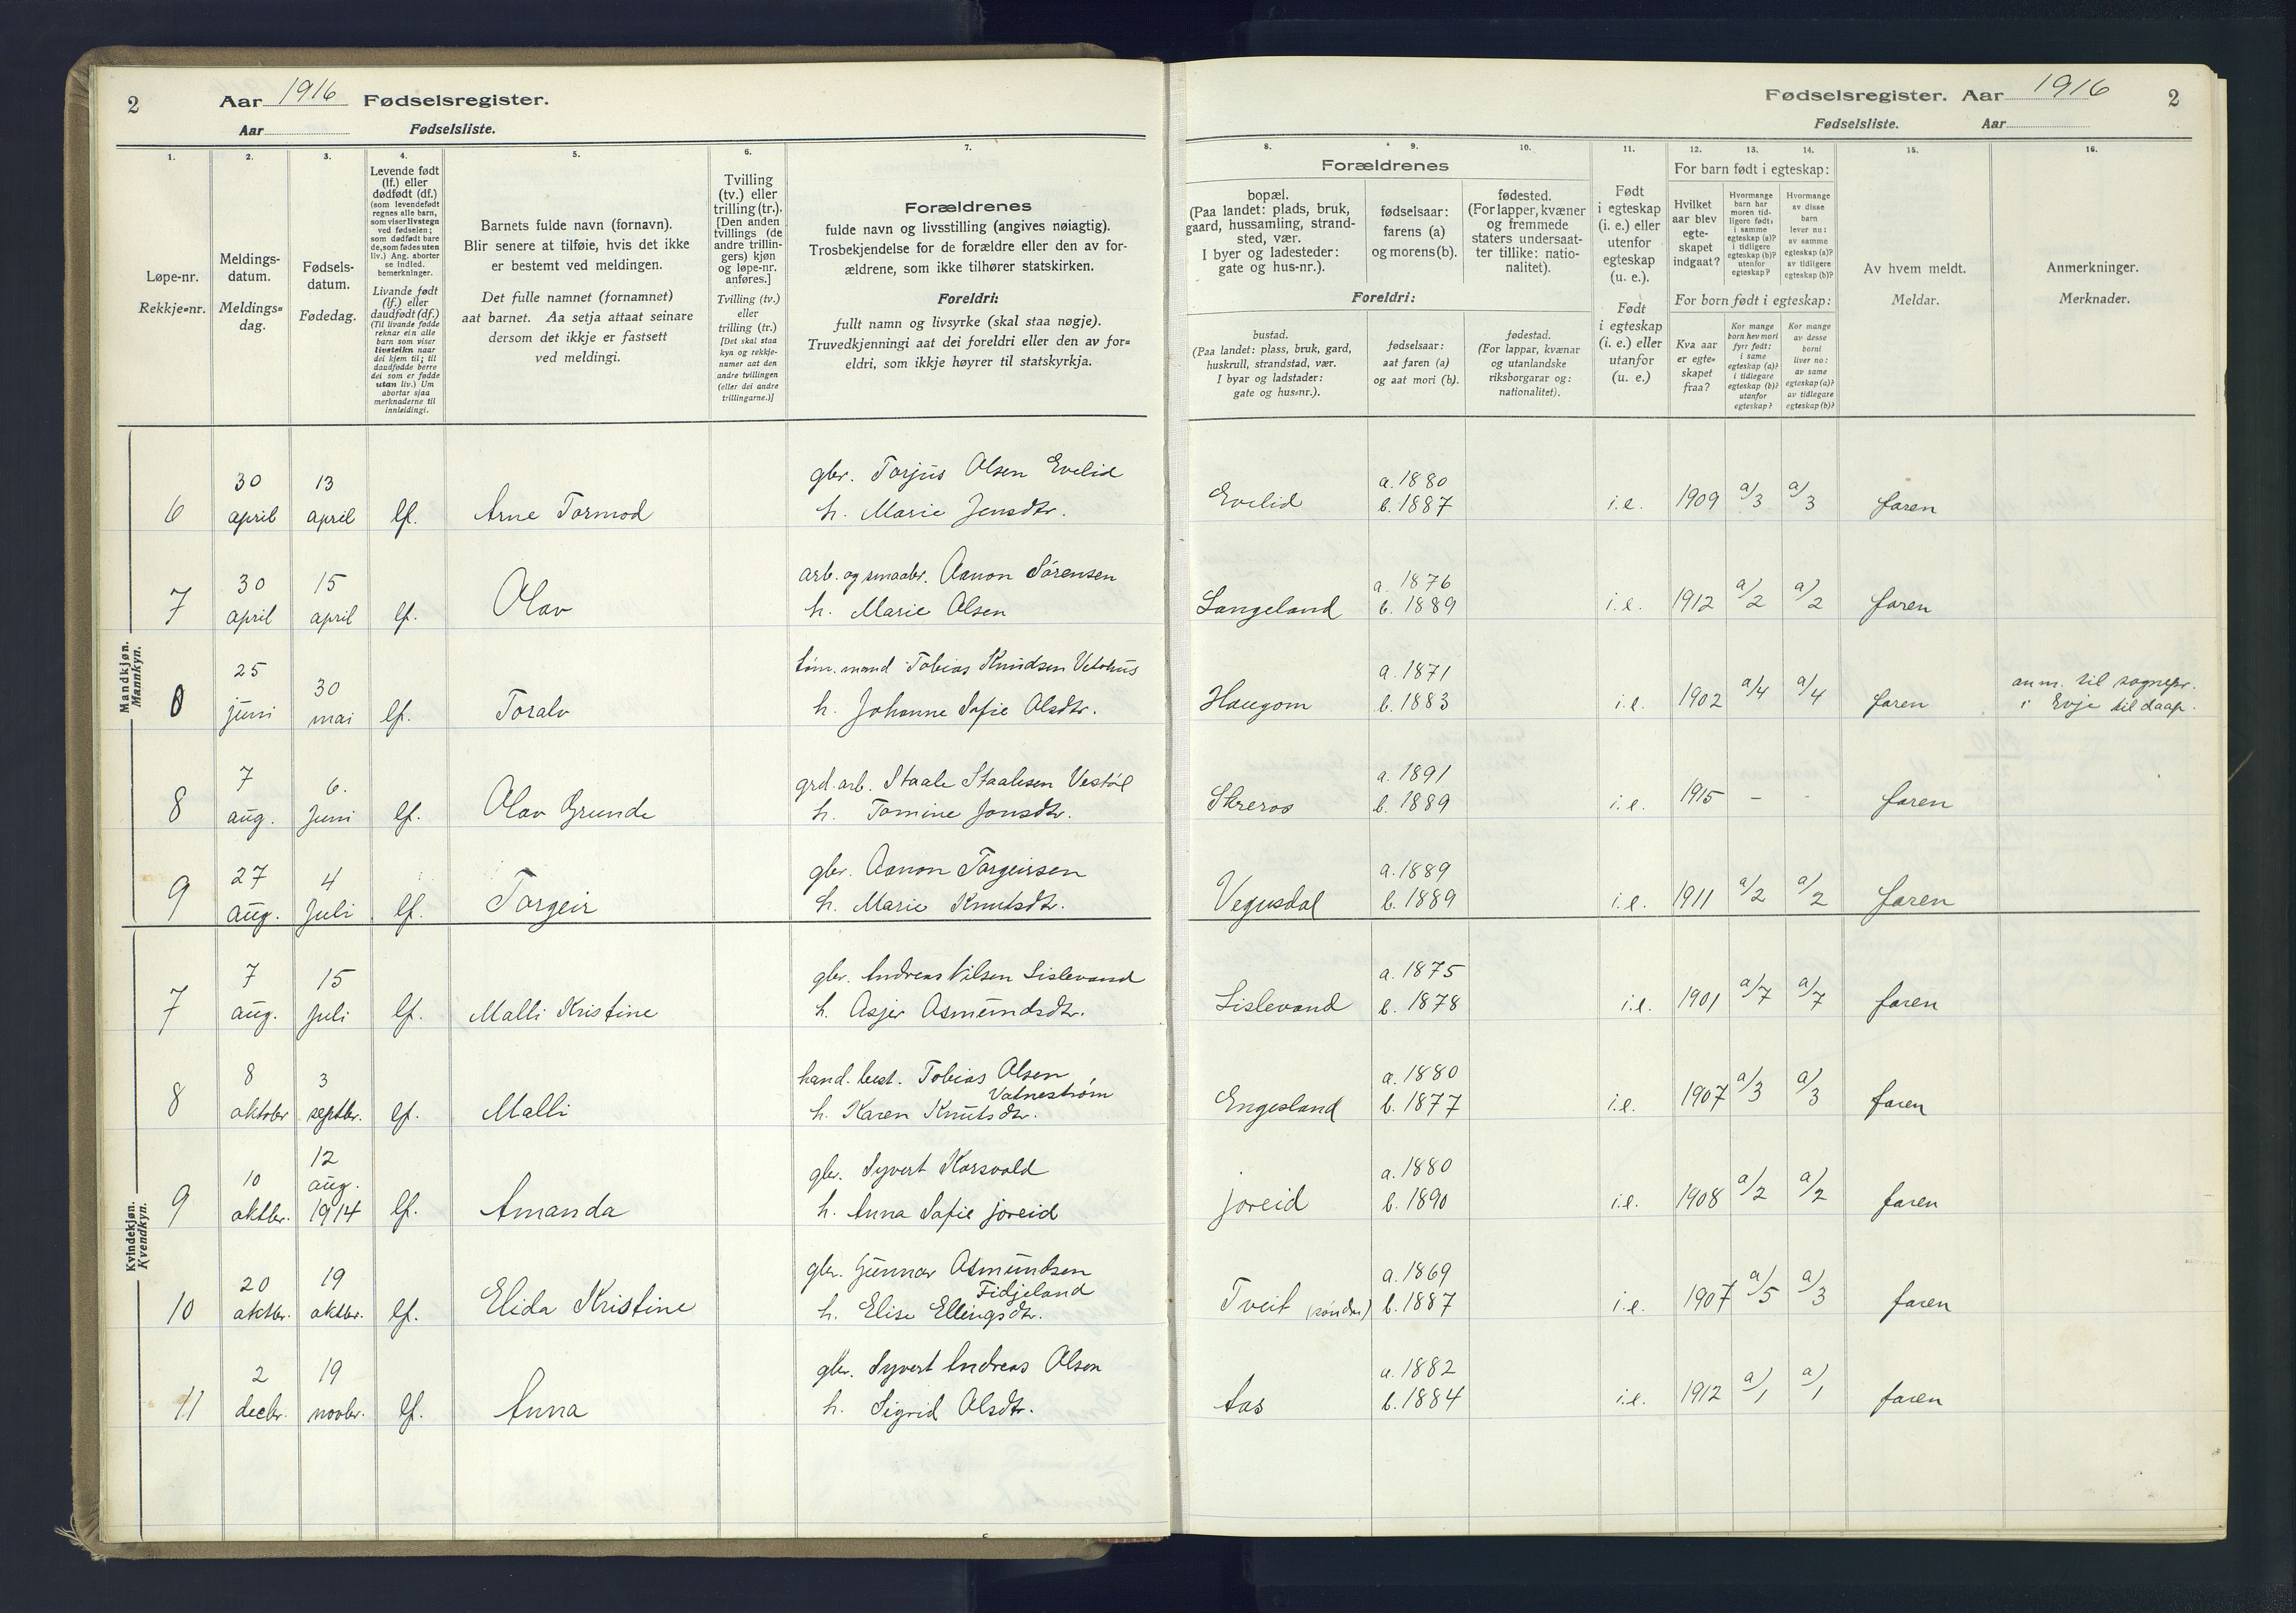 2
Aar 1916 Fødselsregister.
Aar Fødselsliste.
Fødselsregister. Aar 1916
2
Fødselsliste. Aar
1.
Løpe-nr.
Rekkje=nr.
2.
Meldings-
datum.
Meldings=
dag.
3.
Fødsels-
datum.
Fødedag.
4.
Levende født
(lf.) eller
dødfødt (df.)
(som levendefødt
regnes alle barn,
som viser livstegn
ved fødselen;
som dødfødt bare
de, som fødes uten
liv.) Ang. aborter
se indled.
bemerkninger.
Livande født
(lf.) eller
daudfødt (df.)
(Til livande fødde
reknar ein alle
barn som viser
livsteikn naar
dei kjem til; til
daudfødde berre
dei som er fødde
utan liv.) Um
abortar sjaa
merknaderne til
innleidingi.
5.
Barnets fulde navn (fornavn).
Blir senere at tilføie, hvis det ikke
er bestemt ved meldingen.
Det fulle namnet (fornamnet)
aat barnet. Aa setja attaat seinare
dersom det ikkje er fastsett
ved meldingi.
6.
Tvilling
(tv.) eller
trilling (tr.).
[Den anden
tvillings (de
andre trillin-
gers) kjøn
og løpe-nr.
anføres.]
Tvilling (tv.)
eller
trilling (tr.)
[Det skal staa
kyn og rekkje-
numer aat den
andre tvillingen
(eller dei andre
trillingarne.)]
7.
Forældrenes
fulde navn og livsstilling (angives nøiagtig).
Trosbekjendelse for de forældre eller den av for-
ældrene, som ikke tilhører statskirken.
Foreldri:
fullt namn og livsyrke (skal staa nøgje).
Truvedkjenningi aat dei foreldri eller den av for=
eldri, som ikkje høyrer til statskyrkja.
Forældrenes
8.
bopæl.
(Paa landet: plads, bruk,
gaard, hussamling, strand-
sted, vær.
I byer og ladesteder:
gate og hus-nr.).
9.
fødselsaar:
farens (a)
og morens (b).
10.
fødested.
(For lapper, kvæner
og fremmede
staters undersaat-
ter tillike: natio-
nalitet).
Foreldri:
bustad.
(Paa landet: plass, bruk, gard,
huskrull, strandstad, vær.
I byar og ladstader:
gate og hus=nr.).
fødselsaar:
aat faren (a)
og aat mori (b).
fødestad.
(For lappar, kvænar
og utanlandske
riksborgarar og:
nationalitet).
11.
Født
i egteskap
(i. e.) eller
utenfor
egteskap
(u. e.).
Født
i egteskap
(i. e.) eller
utanfor
(u. e.)
12. 13. 14.
For barn født i egteskap:
Hvilket
aar blev
egte-
skapet
indgaat?
Hvormange
barn har
moren tid-
ligere født:
i samme
egteskap (a)?
i tidligere
egteskap (b)?
utenfor
egteskap?
Hvormange
av disse
barn
lever nu:
av samme
egteskap (a)?
av tidligere
egteskap (b)?
For born født i egteskap:
Kva aar
er egte=
skapet
fraa?
Kor mange
born hev mori
fyrr født:
i same
egteskap (a)?
i tidlegare
egteskap (b)?
utanfor
egteskap?
Kor mange
av desse
borni
liver no:
av same
egteskap (a)?
av tidlegare
egteskap (b)?
15.
Av hvem meldt.
Meldar.
16.
Anmerkninger.
Merknader.
Mandkjøn.
Mannkyn.
6 30 april 13 april lf. Arne Tormod gbr. Torjus Olsen Evelid
h. Marie Jensdtr. Evelid a. 1880
b. 1887 i.e. 1909 a/3 a/3 faren
7 30 april 15 april lf. Olav arb. og smaabr. Aanon Sørensen
h. Marie Olsen Langeland a. 1876
b. 1889 i.e. 1912 a/2 a/2 faren
0 25 juni 30 mai lf. Toralv tøm.mand Tobias Knudsen Vetrhus
h. Johanne Sofie Olsdtr. Haugom a. 1871
b. 1883 i.e. 1902 a/4 a/4 faren anm. til sognepr.
i Evje til daap.
8 7 aug. 6. Juni lf. Olav Grunde grd.arb. Staale Staalesen Vestøl
h. Tomine Jonsdtr. Skreros a. 1891
b. 1889 i.e. 1915 - - faren
9 27 aug. 4 Juli lf. Torgeir gbr. Aanon Torgeirsen
h. Marie Knutsdtr. Vegusdal a. 1889
b. 1889 i.e. 1911 a/2 a/2 faren
Kvindekjøn.
Kvendkyn.
7 7 aug. 15 Juli lf. Malli Kristine gbr. Andreas Nilsen Lislevand
h. Asjer Asmundsdtr. Lislevand a. 1875
b. 1878 i.e. 1901 a/7 a/7 faren
8 8 oktober 3 septbr. lf. Malli hand.best. Tobias Olsen
Vatnestrøm
h. Karen Knutsdtr. Engesland a. 1880
b. 1877 i.e. 1907 a/3 a/3 faren
9 10 oktbr. 12 aug. 1914 lf. Amanda gbr. Syvert Korsvold
h. Anna Sofie Joreid Joreid a. 1880
b. 1890 i.e. 1908 a/2 a/2 faren
10 20 oktbr. 19 oktbr. lf. Elida Kristine gbr. Gunnar Asmundsen
Fidjeland
h. Elise Ellingsdtr. Tveit (søndre) a. 1869
b. 1887 i.e. 1907 a/5 a/3 faren
11 2 decbr. 19 novbr. lf. Anna gbr. Syvert Andreas Olsen
h. Sigrid Olsdtr. Aas a. 1882
b. 1884 i.e. 1912 a/1 a/1 faren